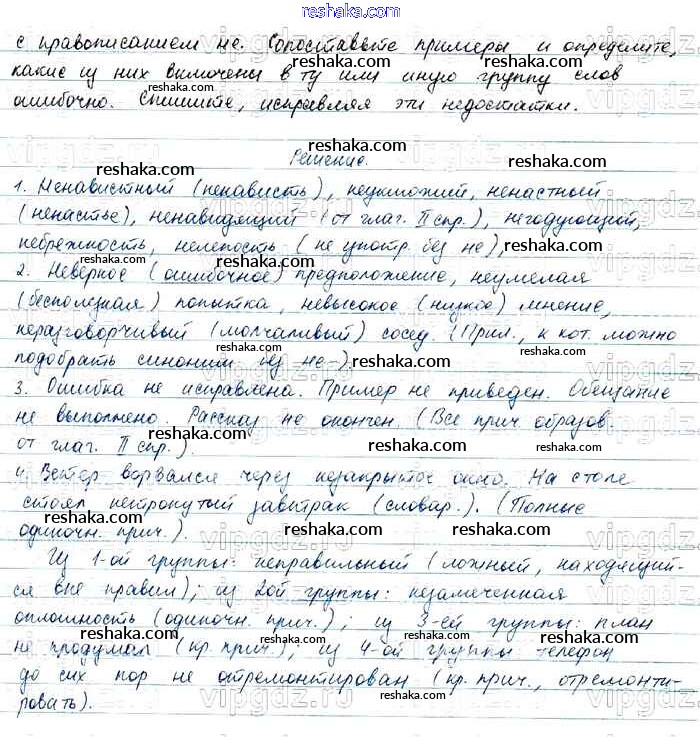 reshaka.com
с правописанием не. Сопоставьте примеры и определите,
какие из них включены в ту или иную группу слов
ошибочно. Спишите, исправляя эти недостатки.
Решение.
1. Ненавистный (ненависть), неуклюжий, ненастный
(ненастье), ненавидящий (от глаг. II спр.), негодующий,
небрежность, нелепость (не употр. без не),
2. Неверное (ошибочное) предположение, неумелая
(бесполезная) попытка, невысокое (низкое) мнение,
неразговорчивый (молчаливый) сосед. (Прил., к кот. можно
подобрать синоним без не-).
3. Ошибка не исправлена. Пример не приведен. Обещание
не выполнено. Рассказ не окончен. (Все прич. образов.
от глаг. II спр.).
4. Ветер ворвался через незакрытое окно. На столе
стоял нетронутый завтрак (словар.). (Полные
одиночн. прич.).
Из 1-ой группы: неправильный (ложный, находящий-
ся вне правил); из 2ой группы: незамеченная
оплошность (одиночн. прич.); из 3-ей группы: план
не продуман (кр. прич.); из 4-ой группы телефон
до сих пор не отремонтирован (кр. прич., отремонти-
ровать).